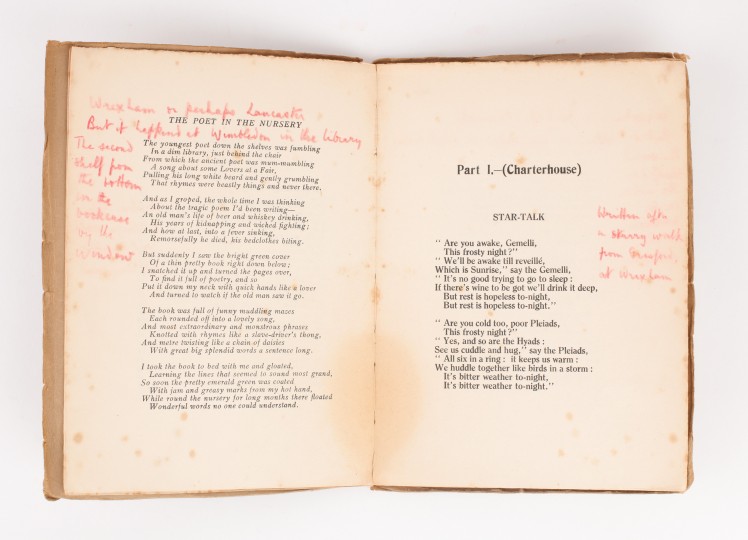 Wrexham or perhaps Lancaster
THE POET IN THE NURSERY
But it happened at Wimbledon in the library
The second
shelf from
the bottom
in the
bookcase
by the
window
The youngest poet down the shelves was fumbling
In a dim library, just behind the chair
From which the ancient poet was mum-mumbling
A song about some Lovers at a Fair,
Pulling his long white beard and gently grumbling
That rhymes were beastly things and never there.
And as I groped, the whole time I was thinking
About the tragic poem I'd been writing—
An old man's life of beer and whiskey drinking,
His years of kidnapping and wicked fighting;
And how at last, into a fever sinking,
Remorsefully he died, his bedclothes biting.
But suddenly I saw the bright green cover
Of a thin pretty book right down below;
I snatched it up and turned the pages over,
To find it full of poetry, and so
Put it down my neck with quick hands like a lover
And turned to watch if the old man saw it go.
The book was full of funny muddling mazes
Each rounded off into a lovely song,
And most extraordinary and monstrous phrases
Knotted with rhymes like a slave-driver's thong,
And metre twisting like a chain of daisies
With great big splendid words a sentence long.
I took the book to bed with me and gloated,
Learning the lines that seemed to sound most grand,
So soon the pretty emerald green was coated
With jam and greasy marks from my hot hand,
While round the nursery for long months there floated
Wonderful words no one could understand.
Part I.—(Charterhouse)
STAR-TALK
Written after
a starry walk
from Gresford
at Wrexham
" Are you awake, Gemelli,
This frosty night?"
" We'll be awake till reveillé,
Which is Sunrise," say the Gemelli,
" It's no good trying to go to sleep :
If there's wine to be got we'll drink it deep,
But rest is hopeless to-night,
But rest is hopeless to-night."
" Are you cold too, poor Pleiads,
This frosty night?"
" Yes, and so are the Hyads :
See us cuddle and hug," say the Pleiads,
" All six in a ring : it keeps us warm :
We huddle together like birds in a storm :
It's bitter weather to-night,
It's bitter weather to-night."